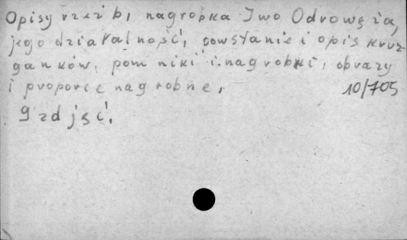 Opisy rzeźb, nagrobka Iwo Odrowęża,
jego działalność, powstanie i opis kruż
ganków, pomniki i nagrobki, obrazy
i proporce nagrobne,
10/705
9 zdjęć,